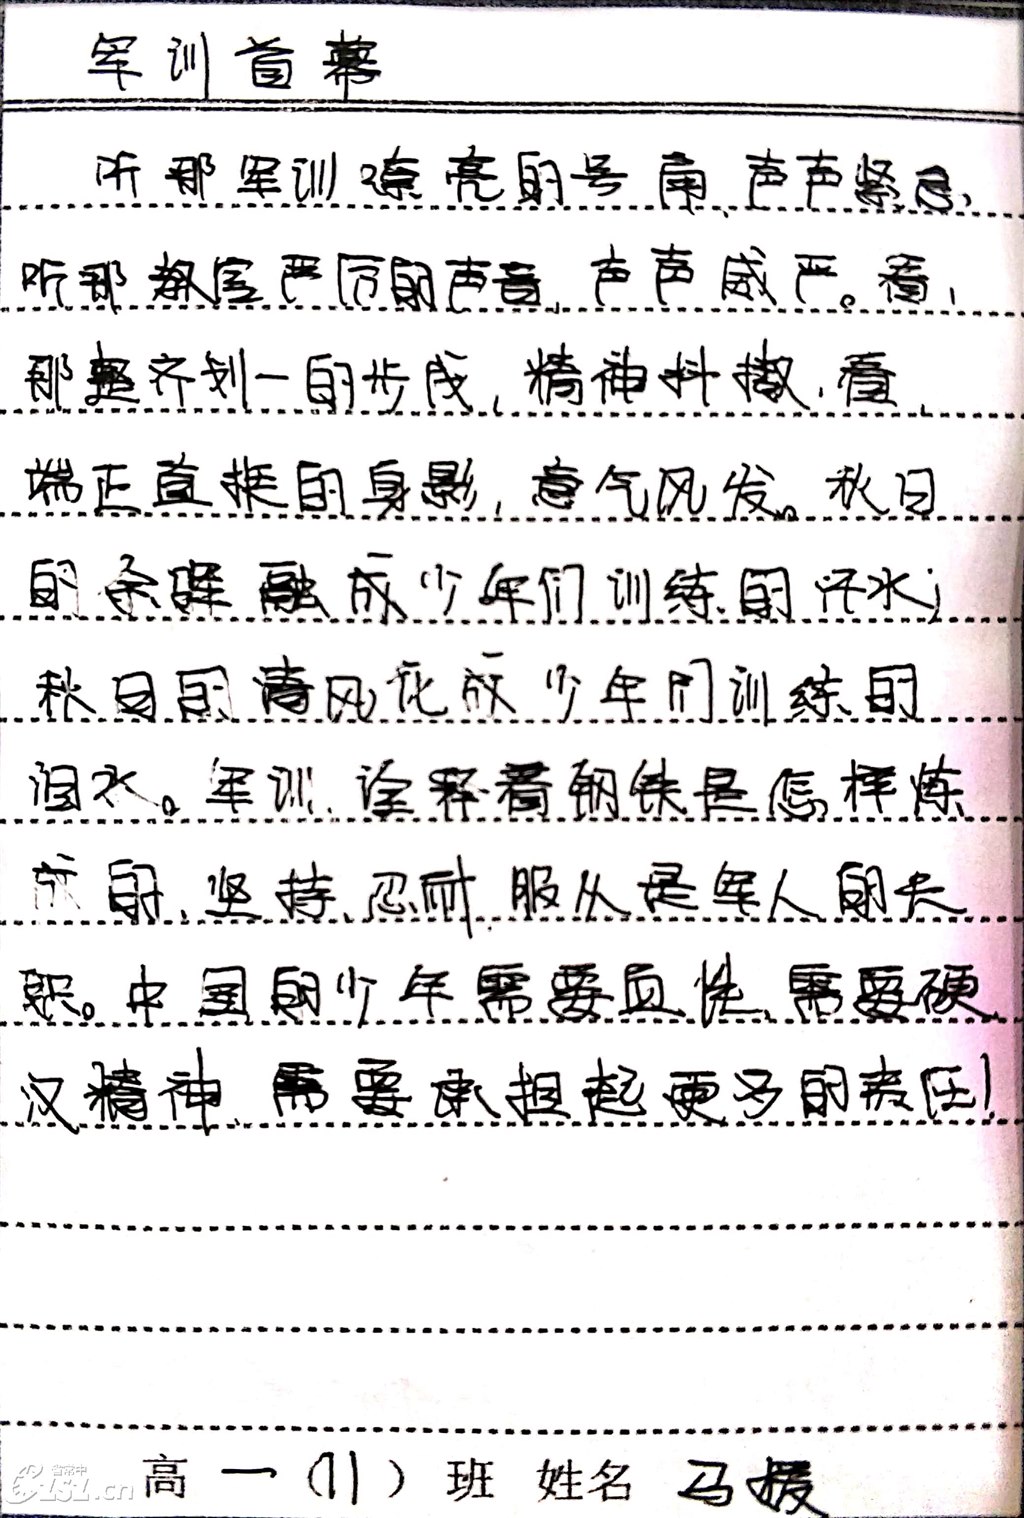 军训首幕
听那军训嘹亮的号角、声声紧急、
听那教官严厉的声音、声声威严。看,
那整齐划一的步伐,精神抖擞,看,
端正直挺的身影,意气风发。秋日
的余晖融成少年们训练的汗水;
秋日的清风化成少年们训练的
泪水。军训、诠释着钢铁是怎样炼
成的、坚持、忍耐、服从是军人的天
职。中国的少年需要血性、需要硬
汉精神、需要承担起更多的责任!
高一(11)班 姓名 马援